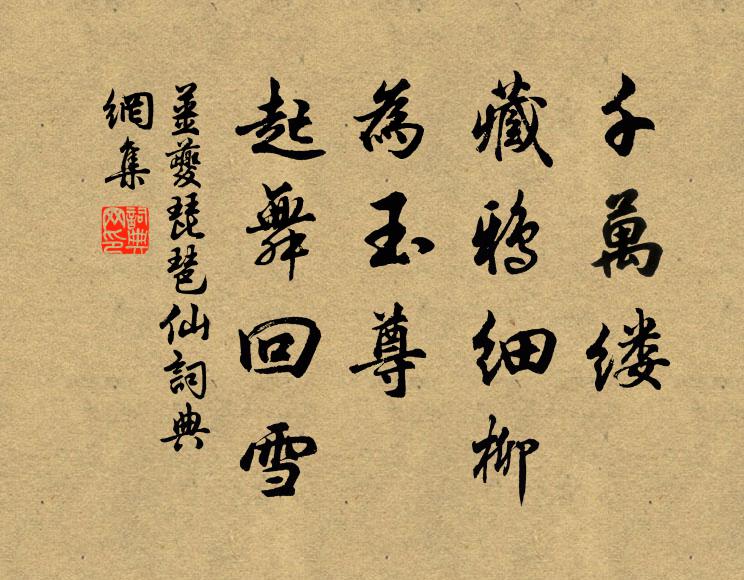 千萬缕
藏鴉细柳
為玉尊
起舞回雪
姜夔琵琶仙詞典
網集
詞典
网印